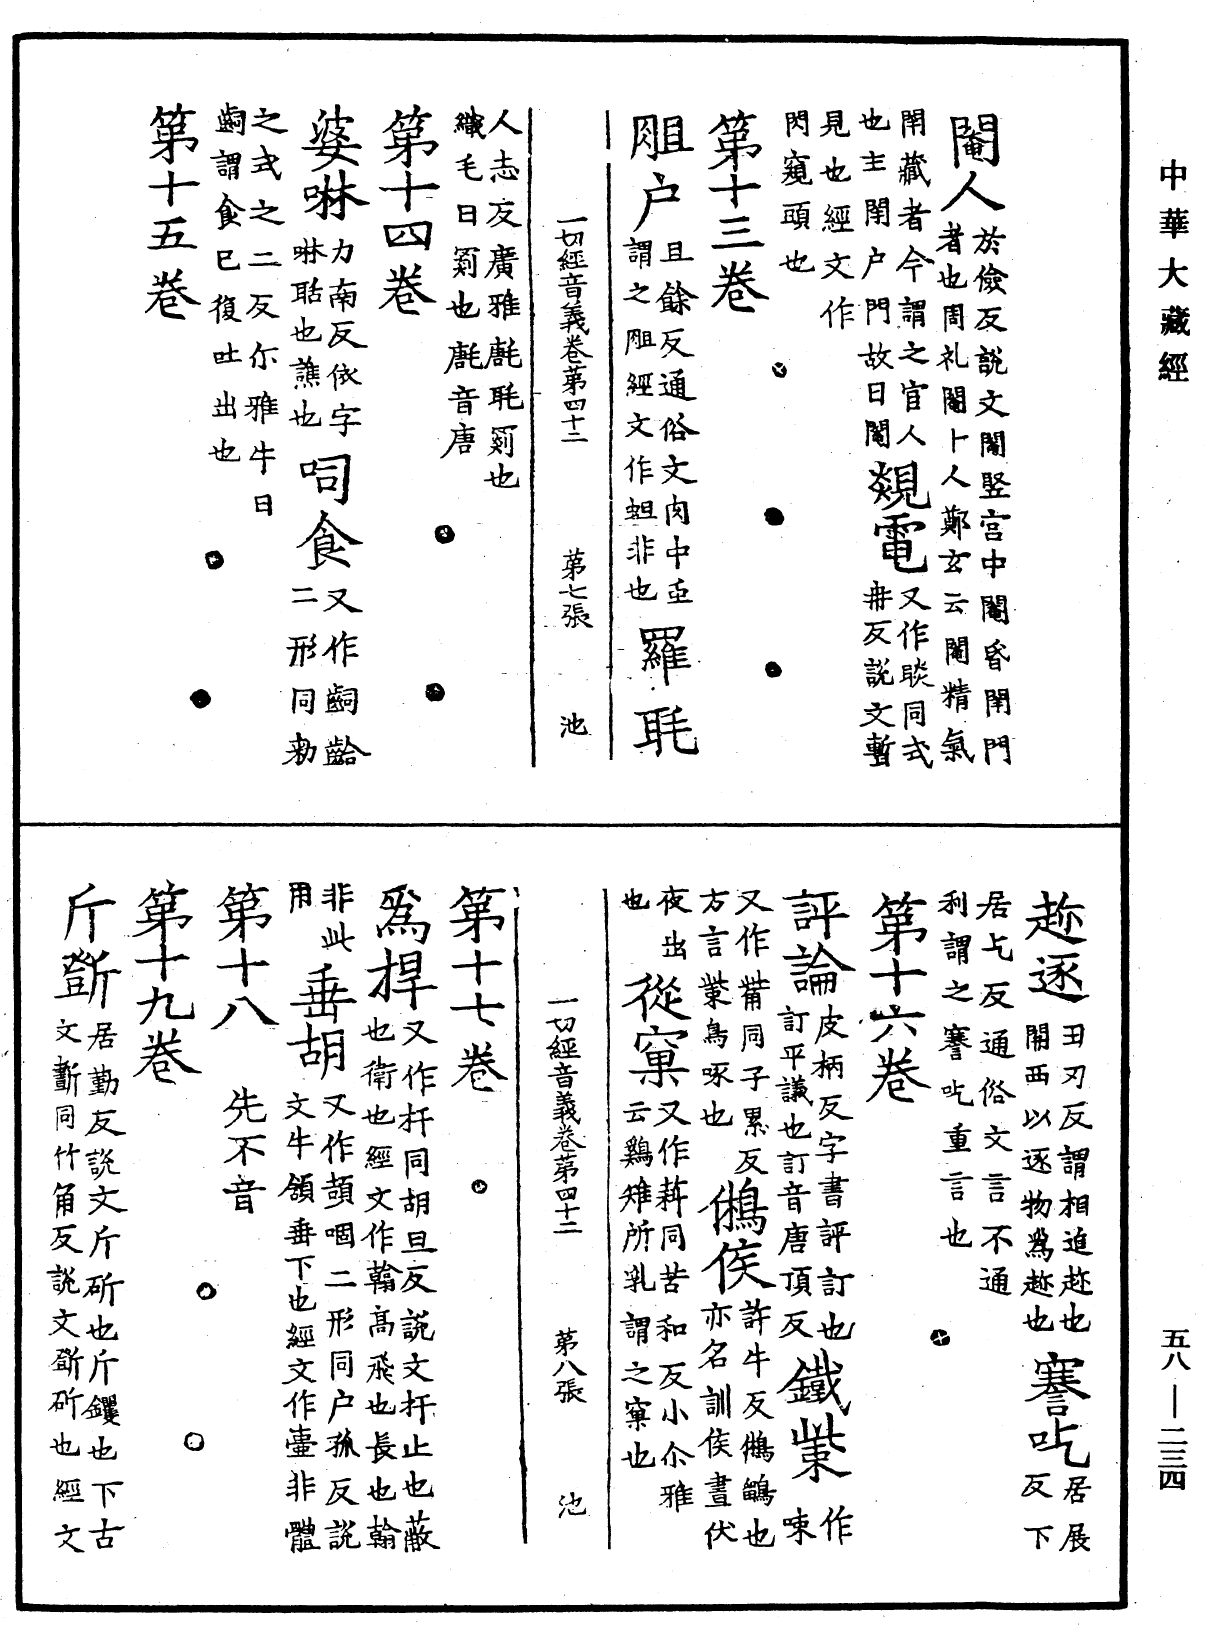 中華大藏經
閹人於儉反說文閹竪宫中閹昏閇門
者也周礼閹十人鄭玄云閹精氣
閇藏者今謂之官人覢電又作睒同式
也主閇户門故曰閹冉反說文暫
見也經文作
閃窺頭也
第十三卷
胆户且餘反通俗文肉中䖝
謂之胆經文作蛆非也羅毦
一切經音義卷第四十二 第七張 池
人志反廣雅㲮毦罽也
織毛曰罽也㲮音唐
第十四卷
婆啉力南反依字
啉聒也譙也呞食又作齝齡
二形同勑
之式之二反尒雅牛曰
齝謂食已復吐出也
第十五卷
趂逐丑刃反謂相追趂也
關西以逐物為趂也謇吃居展
反下
居乞反通俗文言不通
利謂之謇吃重言也
第十六卷
評論皮柄反字書評訂也
訂平議也訂音唐頂反鐵㭰作
㖩
又作𠿘同子累反鵂侯許牛反鵂鶹也
方言㭰鳥啄也亦名訓侯晝伏
夜出從窠又作薖同苦和反小尒雅
也云鷄雉所乳謂之窠也
一切經音義卷第四十二 第八張 池
第十七卷
為捍又作扞同胡旦反說文扞止也蔽
也衛也經文作翰高飛也長也翰
非此垂胡又作頶咽二形同户孤反說
用文牛領垂下也經文作壷非體
第十八 先不音
第十九卷
斤斲居勤反說文斤斫也斤钁也下古
文斵同竹角反說文斲斫也經文
五八—二三四